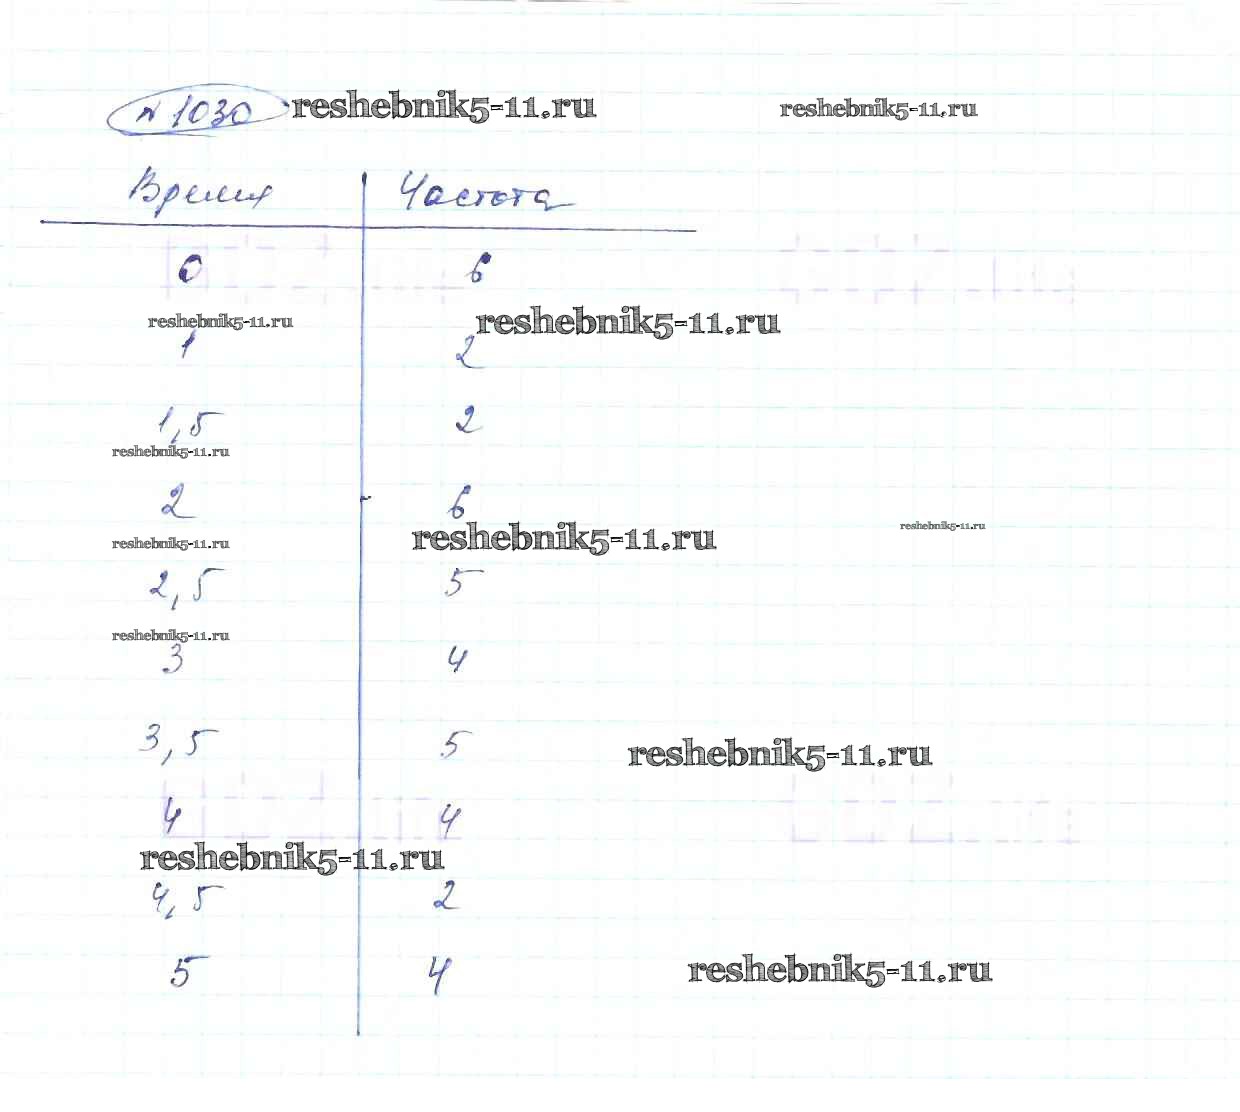 №1030 reshebnik5-11.ru reshebnik5-11.ru
Время Частота
0 6
reshebnik5-11.ru reshebnik5-11.ru
1 2
1,5 2
reshebnik5-11.ru
2 6
reshebnik5-11.ru reshebnik5-11.ru reshebnik5-11.ru
2,5 5
reshebnik5-11.ru
3 4
3,5 5
reshebnik5-11.ru
4 4
reshebnik5-11.ru
4,5 2
5 4
reshebnik5-11.ru